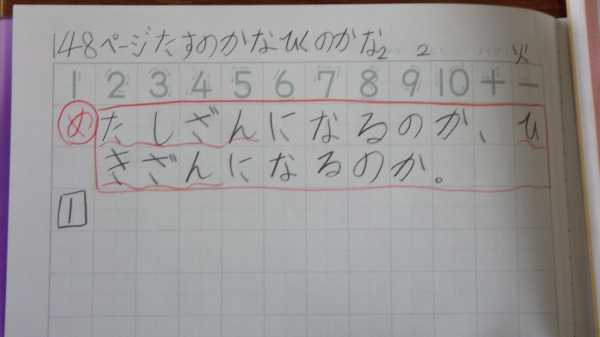 148ページたすのかなひくのかな 2 2 火
1 2 3 4 5 6 7 8 9 10 + −
め たしざんになるのか、ひ
きざんになるのか。
1